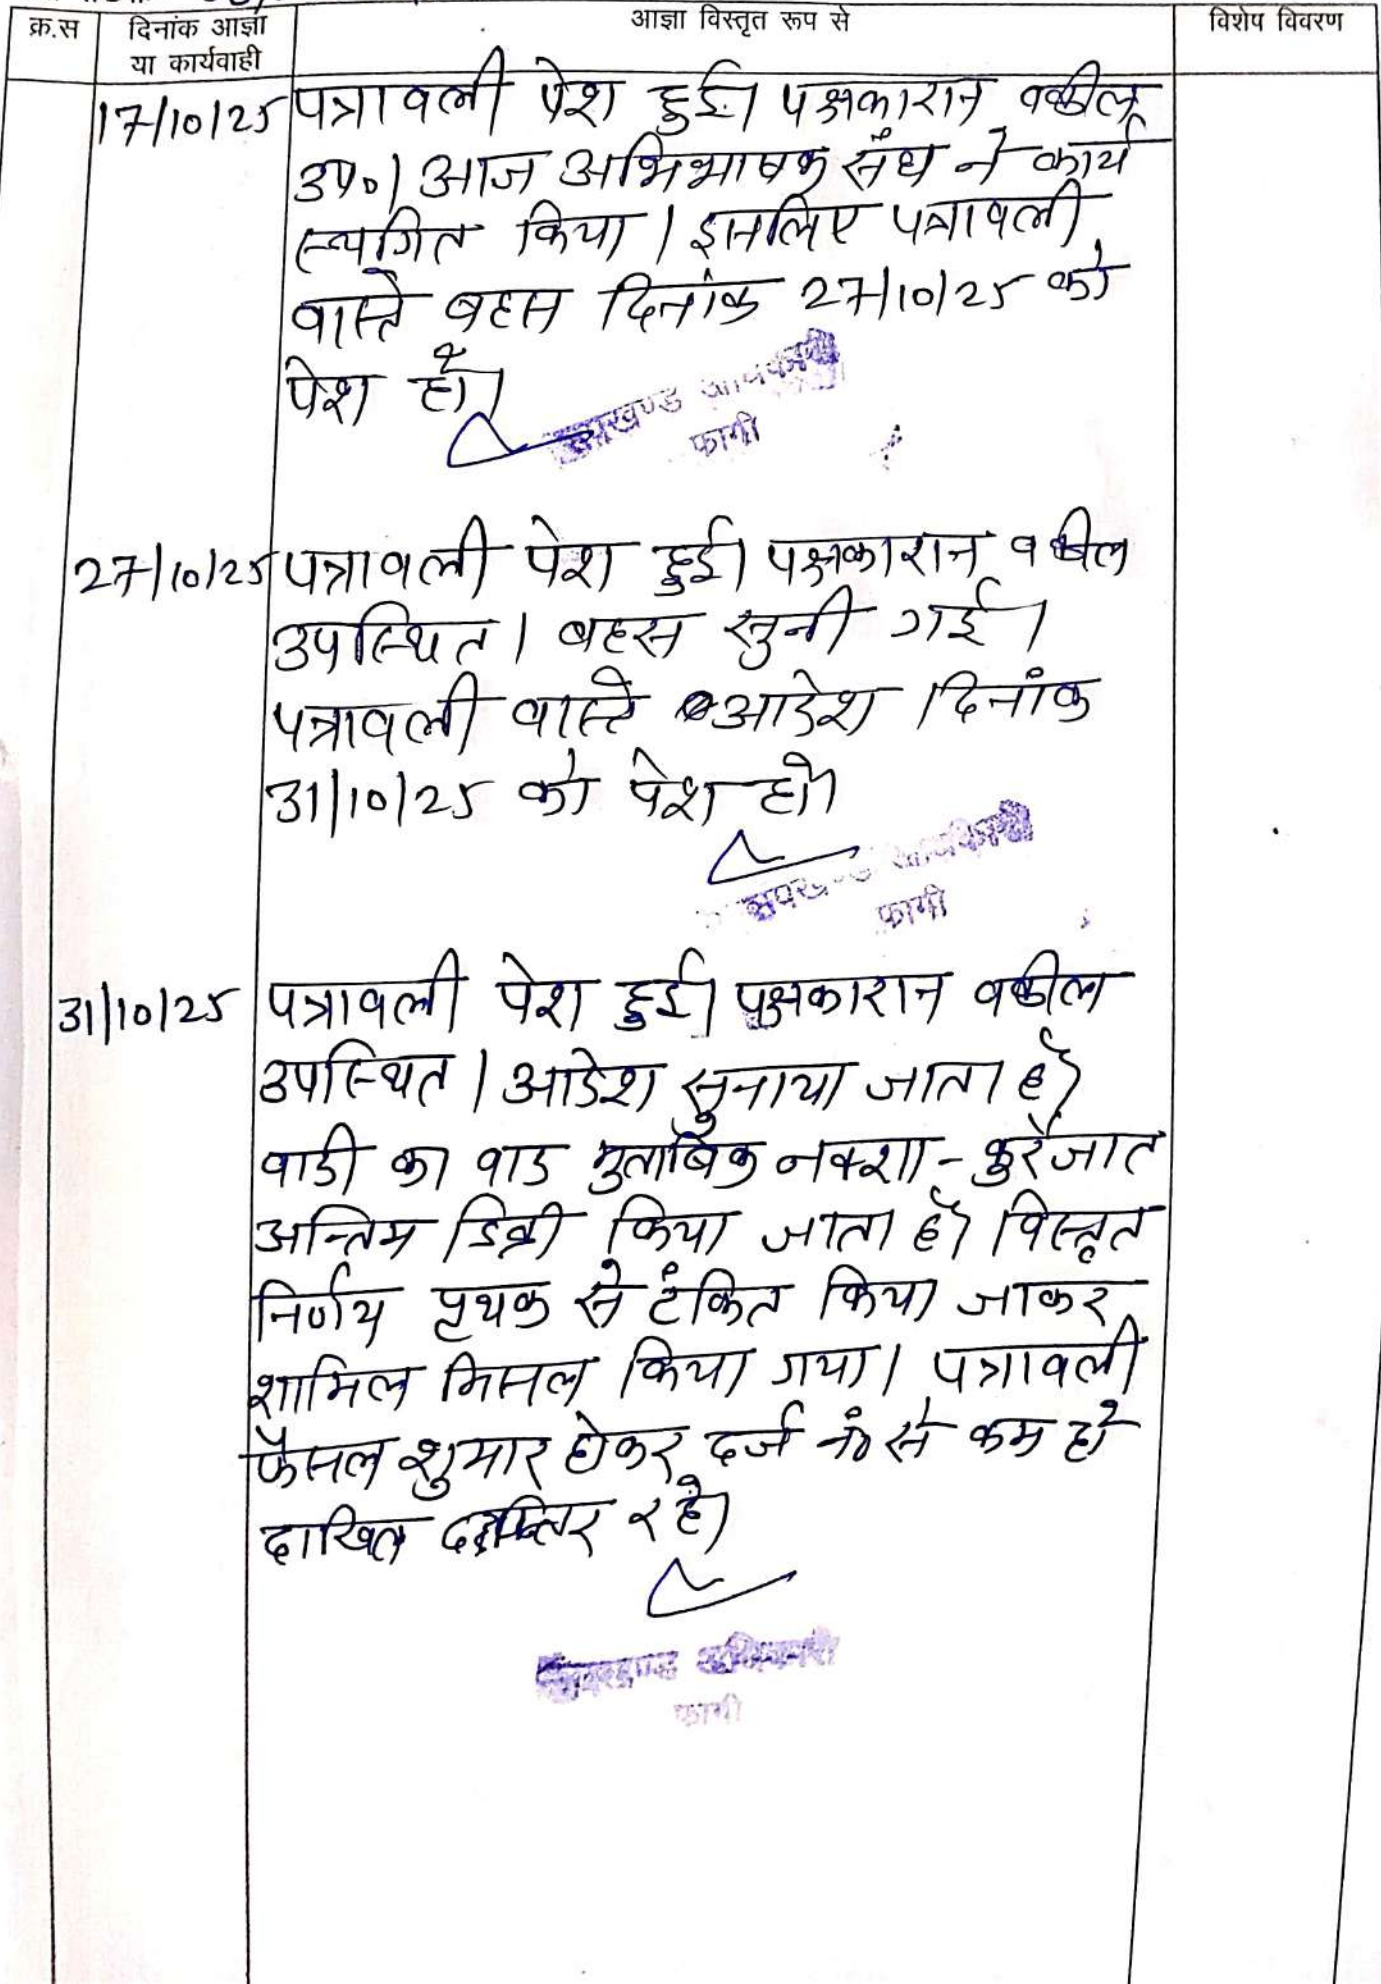 क्र.स
दिनांक आज्ञा
या कार्यवाही
आज्ञा विस्तृत रूप से
विशेष विवरण
17/10/25
पत्रावली पेश हुई। पक्षकारान वकील
उप०। आज अभिभाषक संघ ने कार्य
स्थगित किया। इसलिए पत्रावली
वास्ते बहस दिनांक 27/10/25 को
पेश हो।
उपखण्ड अधिकारी
फागी
27/10/25
पत्रावली पेश हुई। पक्षकारान वकील
उपस्थित। बहस सुनी गई।
पत्रावली वास्ते आदेश दिनांक
31/10/25 को पेश हो।
उपखण्ड अधिकारी
फागी
31/10/25
पत्रावली पेश हुई। पक्षकारान वकील
उपस्थित। आदेश सुनाया जाता है।
वादी का वाद मुताबिक नक्शा - कुर्रेजात
अन्तिम डिक्री किया जाता है। विस्तृत
निर्णय पृथक से टंकित किया जाकर
शामिल मिसल किया गया। पत्रावली
फैसल शुमार होकर दर्ज नं० से कम हो
दाखिल दफ्तर रहे।
उपखण्ड अधिकारी
फागी